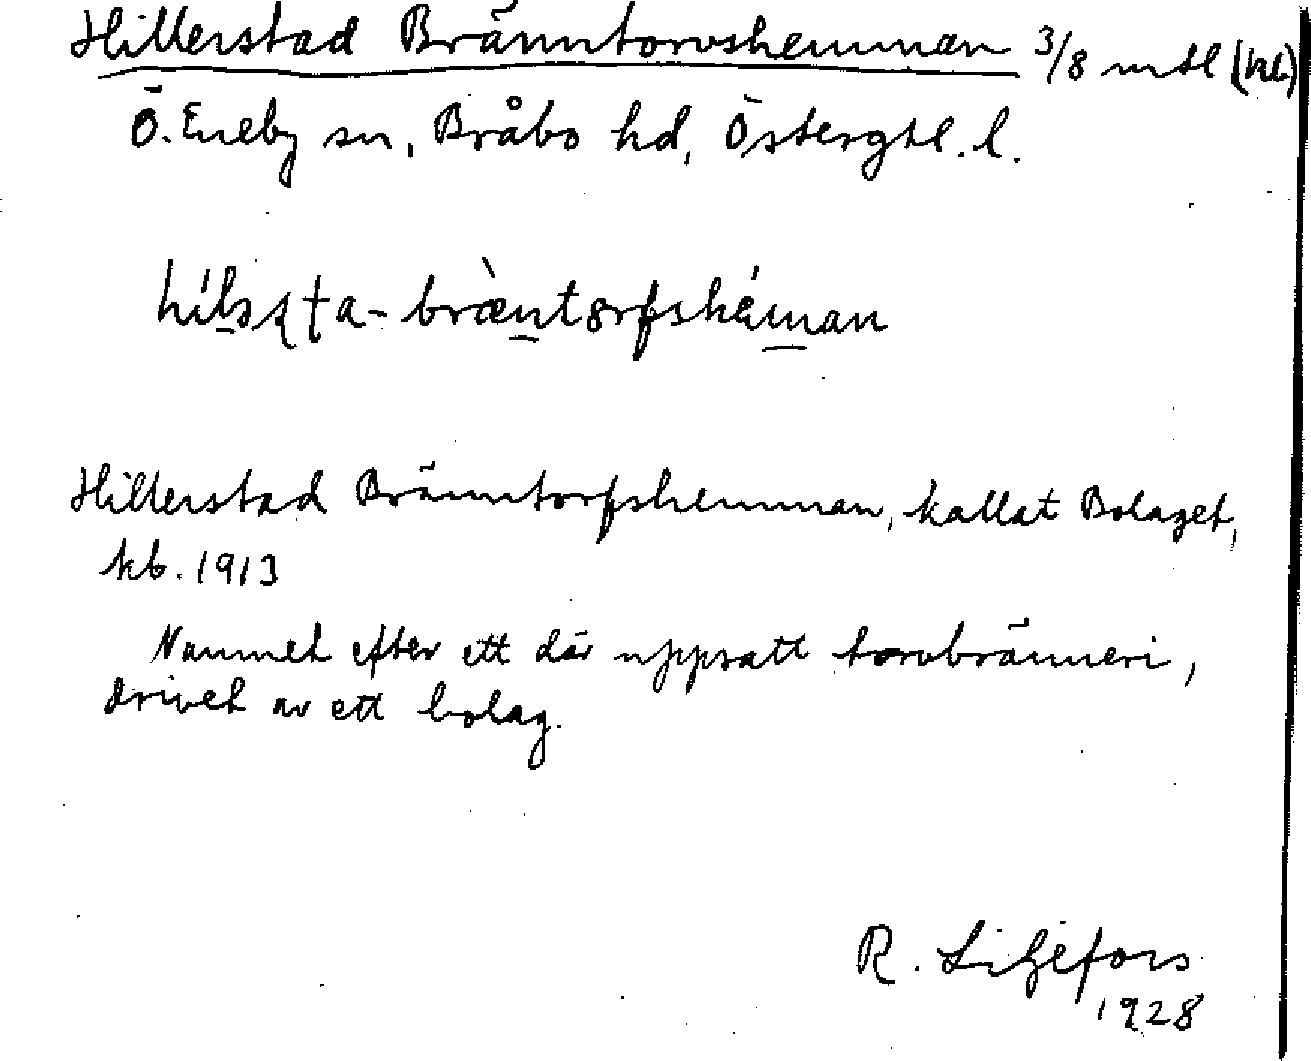 Hillerstad Bränntorvshemman 3/8 mtl (kb)
Ö. Eneby sn, Bråbo hd, Östergtl. l.
Hillerstad Bränntorfshemman, kallat Bolaget,
kb. 1913
Namnet efter ett där uppsatt torvbränneri,
drivet av ett bolag.
R. Liljefors
1928